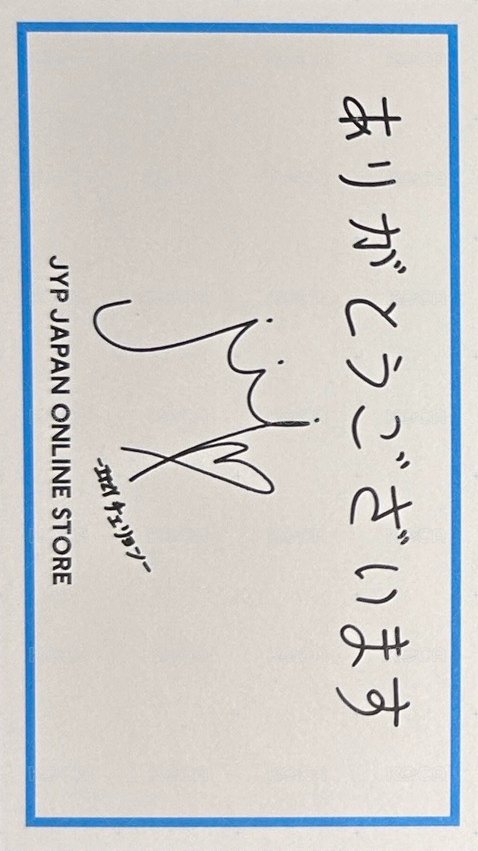 ありがとうございます
-ITZY チェリョン-
JYP JAPAN ONLINE STORE